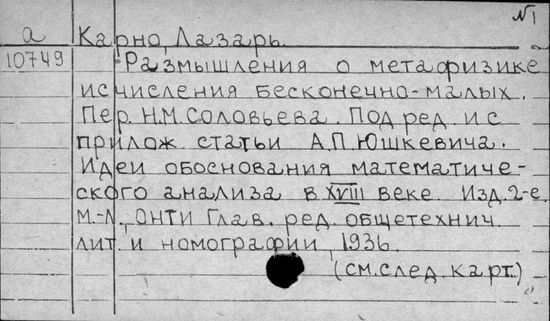 №1
а Карно, Лазарь.
10749 Размышления о метафизике
исчисления бесконечно-малых.
Пер. Н.М. Соловьева. Под ред. и с
прилож. статьи А.П. Юшкевича.
Идеи обоснования математиче-
ского анализа в XVIII веке. Изд. 2-е.
М.-Л., ОНТИ Глав. ред. общетехнич.
лит. и номографии, 1936.
(см. след. карт.)